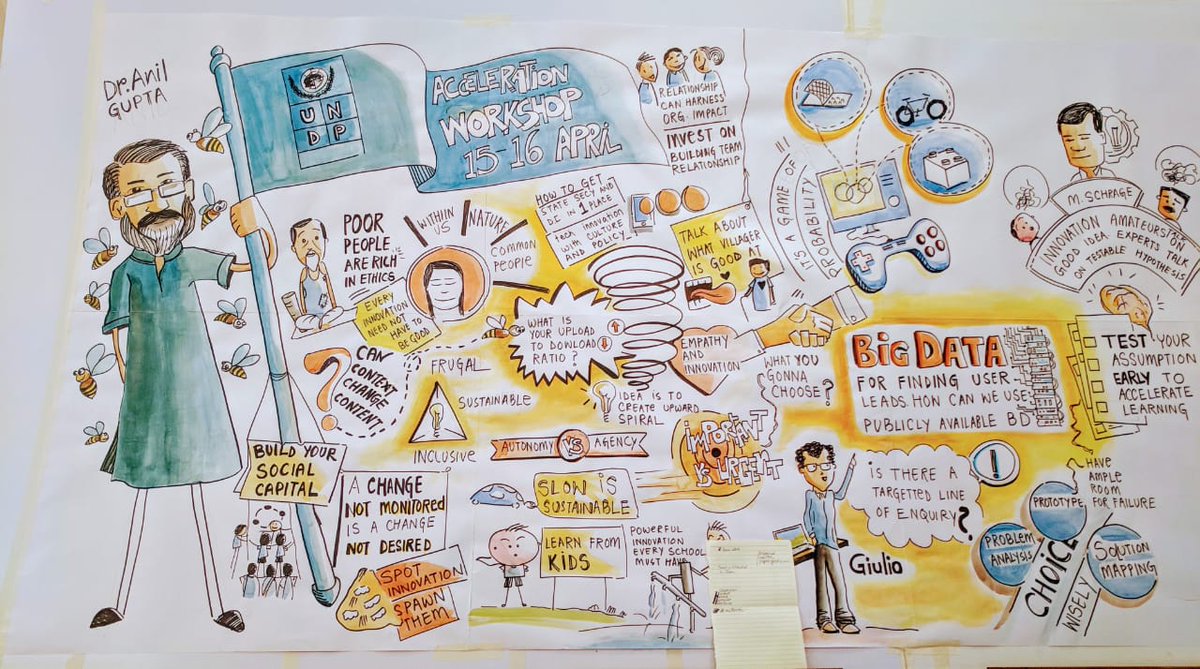 Dr. Anil
GUPTA
UN
DP
ACCELERATION
WORKSHOP
15-16 APRIL
RELATIONSHIP
CAN HARNESS
ORG. IMPACT
INVEST ON
BUILDING TEAM
RELATIONSHIP
POOR
PEOPLE
ARE RICH
IN ETHICS
WITHIN
US
NATURE
COMMON
PEOPLE
EVERY
INNOVATION
NEED NOT
HAVE TO
BE GOOD
HOW TO GET
STATE SECY AND
D.C IN 1 PLACE
tech innovation
with CULTURE
AND
POLICY
TALK ABOUT
WHAT VILLAGER
IS GOOD AT
IT'S A GAME OF
PROBABILITY
M. SCHRAGE
INNOVATION AMATEURS ON
GOOD IDEA. EXPERTS TALK
ON TESTABLE HYPOTHESIS
?
CAN
CONTEXT
CHANGE
CONTENT
FRUGAL
SUSTAINABLE
INCLUSIVE
WHAT IS
YOUR UPLOAD
TO DOWLOAD
RATIO?
IDEA IS TO
CREATE UPWARD
SPIRAL
EMPATHY
AND
INNOVATION
WHAT YOU
GONNA
CHOOSE?
BIG DATA
FOR FINDING USER
LEADS. HOW CAN WE USE
PUBLICLY AVAILABLE BD
TEST YOUR
ASSUMPTION
EARLY TO
ACCELERATE
LEARNING
AUTONOMY VS AGENCY
IMPORTANT
VS URGENT
BUILD YOUR
SOCIAL
CAPITAL
A CHANGE
NOT MONITORED
IS A CHANGE
NOT DESIRED
SPOT INNOVATION
SPAWN
THEM
SLOW IS
SUSTAINABLE
LEARN FROM
KIDS
POWERFUL
INNOVATION
EVERY SCHOOL
MUST HAVE
Giulio
IS THERE A
TARGETTED LINE
OF ENQUIRY?
!
HAVE
AMPLE
ROOM
FOR FAILURE
PROTOTYPE
PROBLEM
ANALYSIS
SOLUTION
MAPPING
CHOICE
WISELY